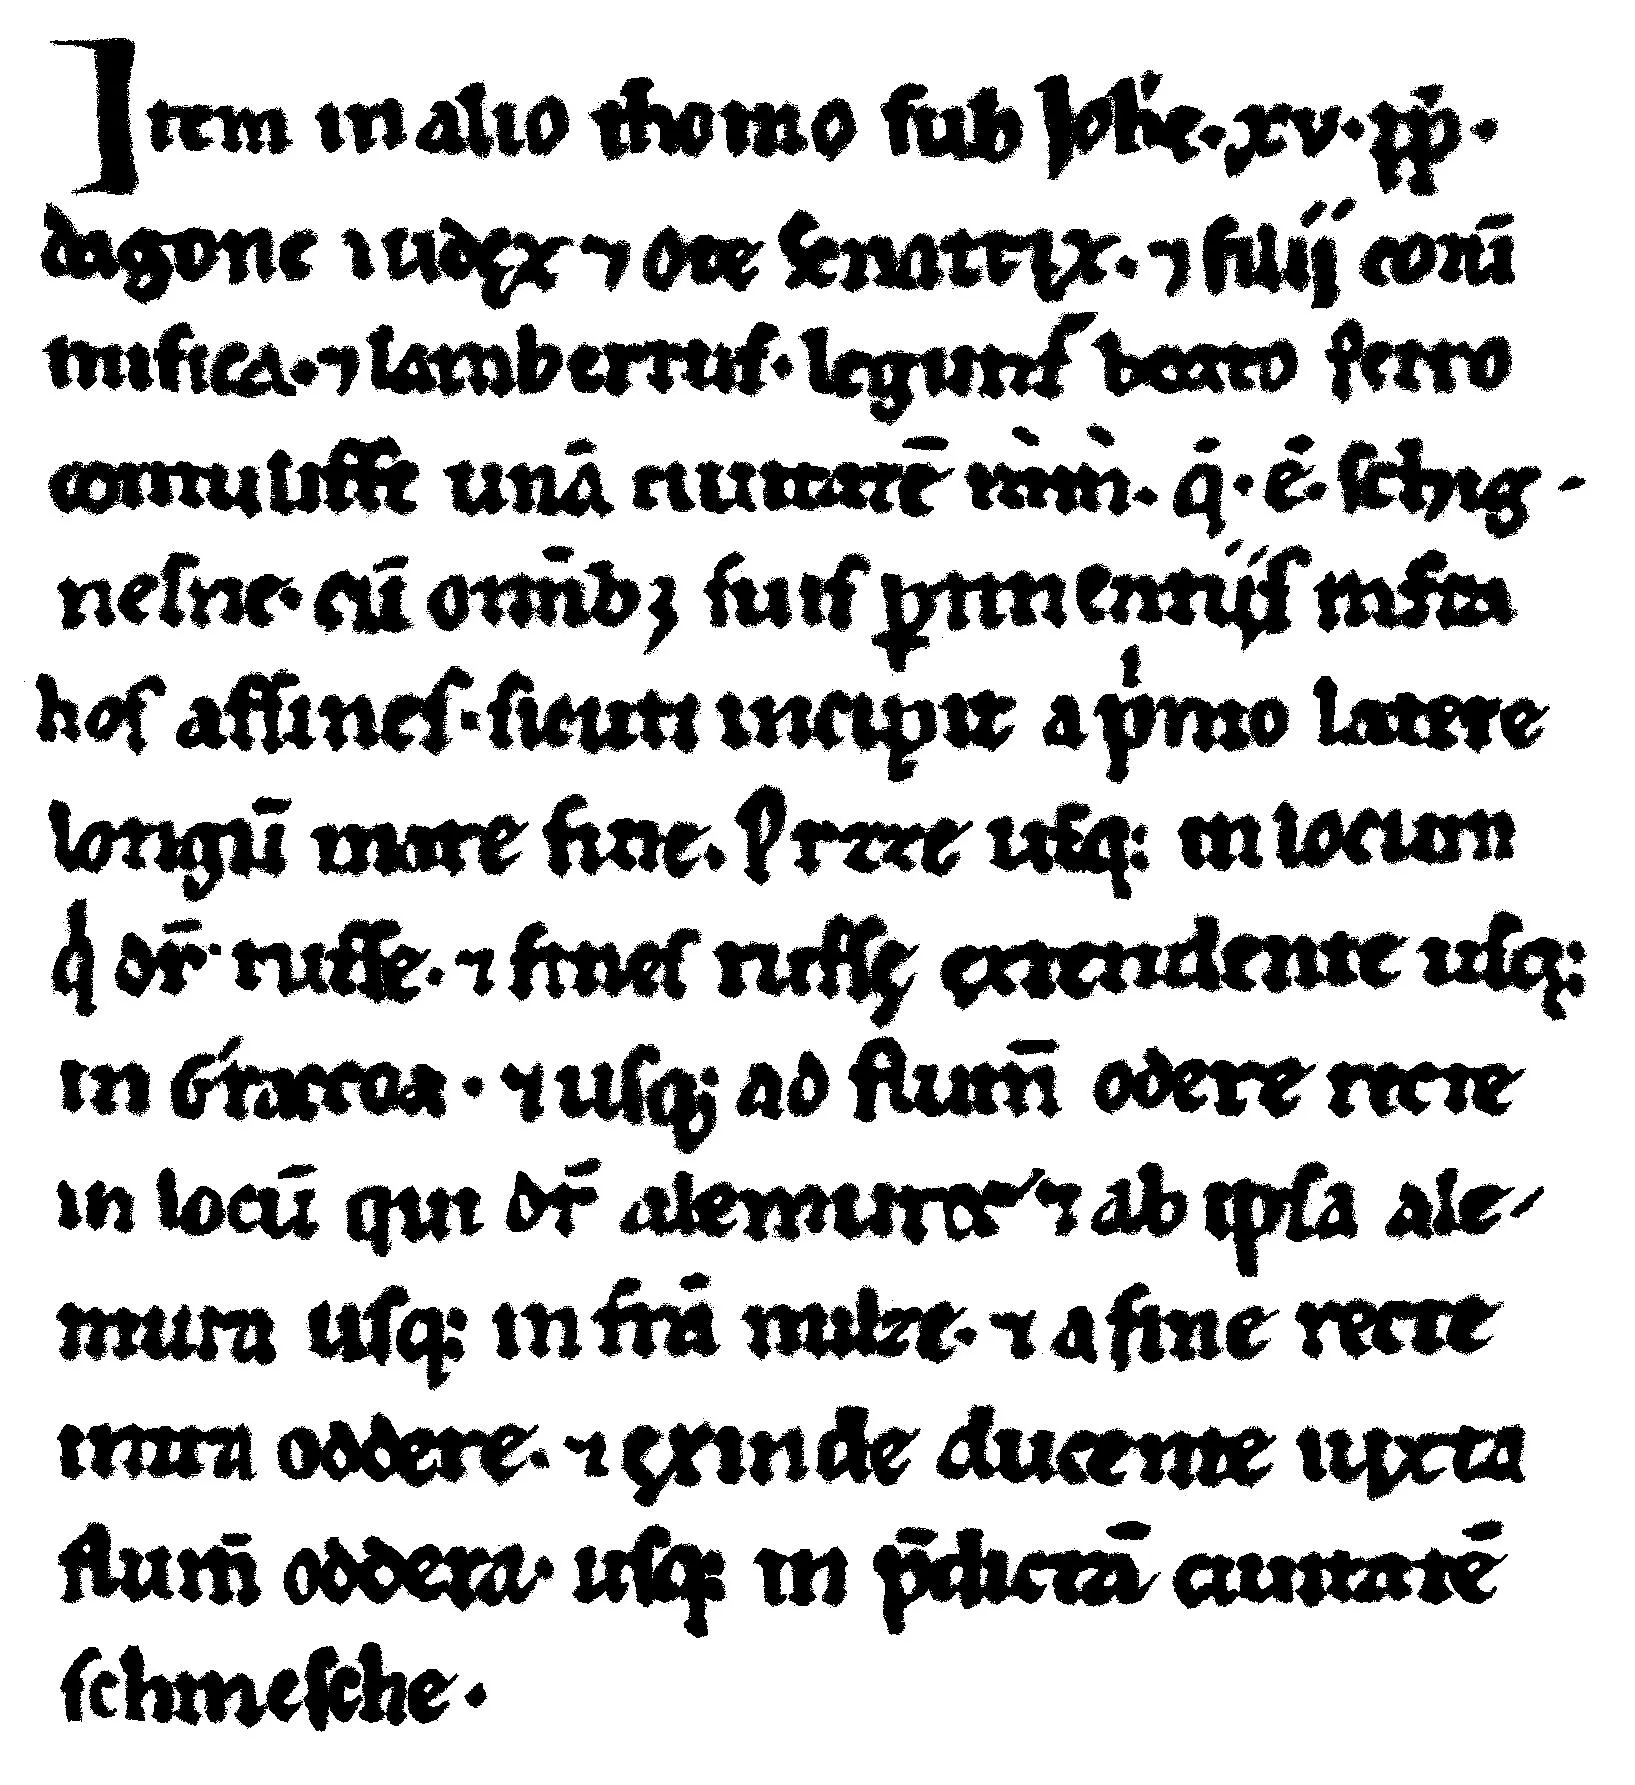 Item in alio thomo sub Joħe · xv · p̄p ·
dagone iudęx ⁊ ote senatrįx · ⁊ filij eorū
misica · ⁊ lambertus · leguntʳ beato petro
contulisse unā ciuitatē ìnìn · q̄ · ē · schig-
nesne · cū om̄ibꝫ suis ꝑtinentijs infra
hos affines · sicuti incipit a pͥmo latere
longū mare fine · Pruzze usq: in locum
qͥ dr̄ russe · ⁊ fines russę ęxtendente usq:
in Craccoa · ⁊ usq; ad flum̄ odere recte
in locū qui dr̄ alemura ⁊ ab ipsa ale-
mura usq: in tr̄ā milze · ⁊ a fine recte
intra oddere · ⁊ ęxinde ducente iuxta
flum̄ oddera · usq: in p̄dictā ciuitatē
schinesche ·